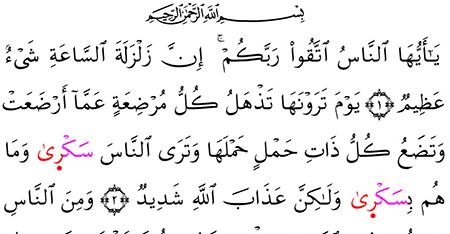 بِسْمِ ٱللَّهِ ٱلرَّحْمَٰنِ ٱلرَّحِيمِ
يَٰٓأَيُّهَا ٱلنَّاسُ ٱتَّقُوا۟ رَبَّكُمْ ۚ إِنَّ زَلْزَلَةَ ٱلسَّاعَةِ شَىْءٌ
عَظِيمٌ ﴿١﴾ يَوْمَ تَرَوْنَهَا تَذْهَلُ كُلُّ مُرْضِعَةٍ عَمَّآ أَرْضَعَتْ
وَتَضَعُ كُلُّ ذَاتِ حَمْلٍ حَمْلَهَا وَتَرَى ٱلنَّاسَ سَكْرٜىٰ وَمَا
هُم بِسَكْرٜىٰ وَلَٰكِنَّ عَذَابَ ٱللَّهِ شَدِيدٌ ﴿٢﴾ وَمِنَ ٱلنَّاسِ